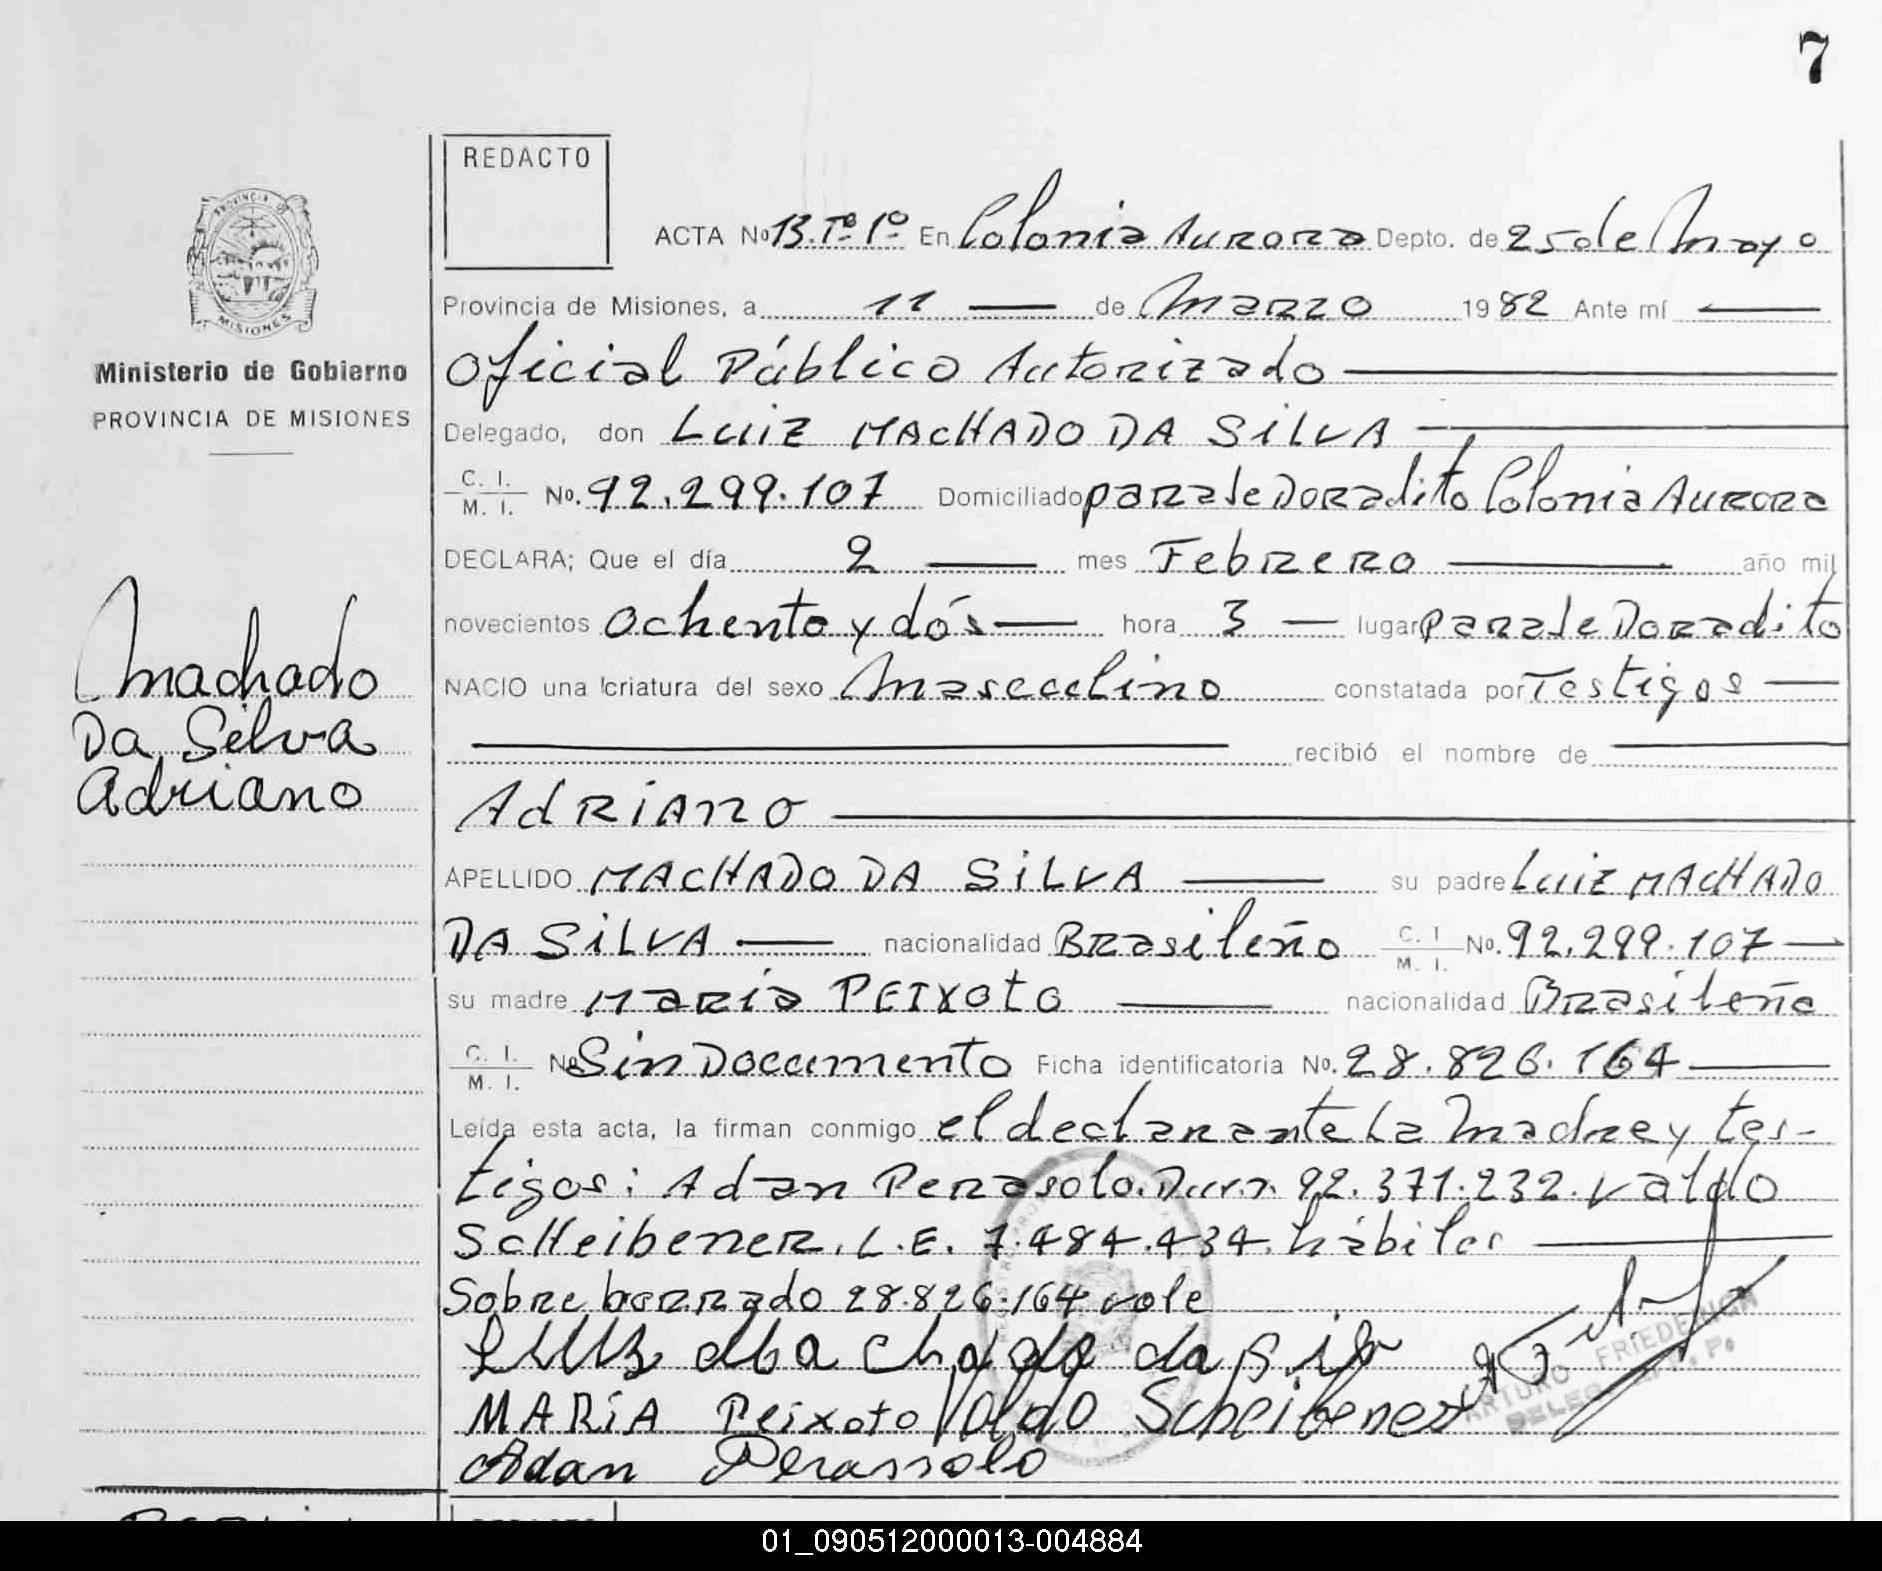 7
REDACTO
ACTA Nº 13. Tº 1º En Colonia Aurora Depto. de 25 de Mayo
Provincia de Misiones, a 11 de Marzo 1982 Ante mí
Oficial Público Autorizado
Delegado, don Luiz MACHADO DA SiLVA
C. I. / M. I. No. 92.299.107 Domiciliado paraje Doradito Colonia Aurora
DECLARA; Que el día 2 mes Febrero año mil
novecientos Ochenta y dós hora 3 lugar paraje Doradito
NACIO una criatura del sexo Masculino constatada por Testigos
recibió el nombre de
AdRiANO
APELLIDO MACHADO DA SiLVA su padre Luiz MACHADO
DA SiLVA nacionalidad Brasileño C. I / M. I. No. 92.299.107
su madre María PEIXOTO nacionalidad Brasileña
C. I. / M. I. No Sin Documento Ficha identificatoria No. 28.826.164
Leída esta acta, la firman conmigo el declarante La Madre y tes-
tigos: Adan Perasolo. D.u.n. 92.371.232. Valdo
Scheibener. L.E. 7.484.434. hábiles
Sobre borrado 28.826.164 vale
Luiz Machado da
MARiA Peixoto Valdo Scheibener
Adan Perassolo
ARTURO FRIEDENGA
PROVINCIA DE
MISIONES
Ministerio de Gobierno
PROVINCIA DE MISIONES
Machado
Da Silva
Adriano
REDACTO
01_090512000013-004884